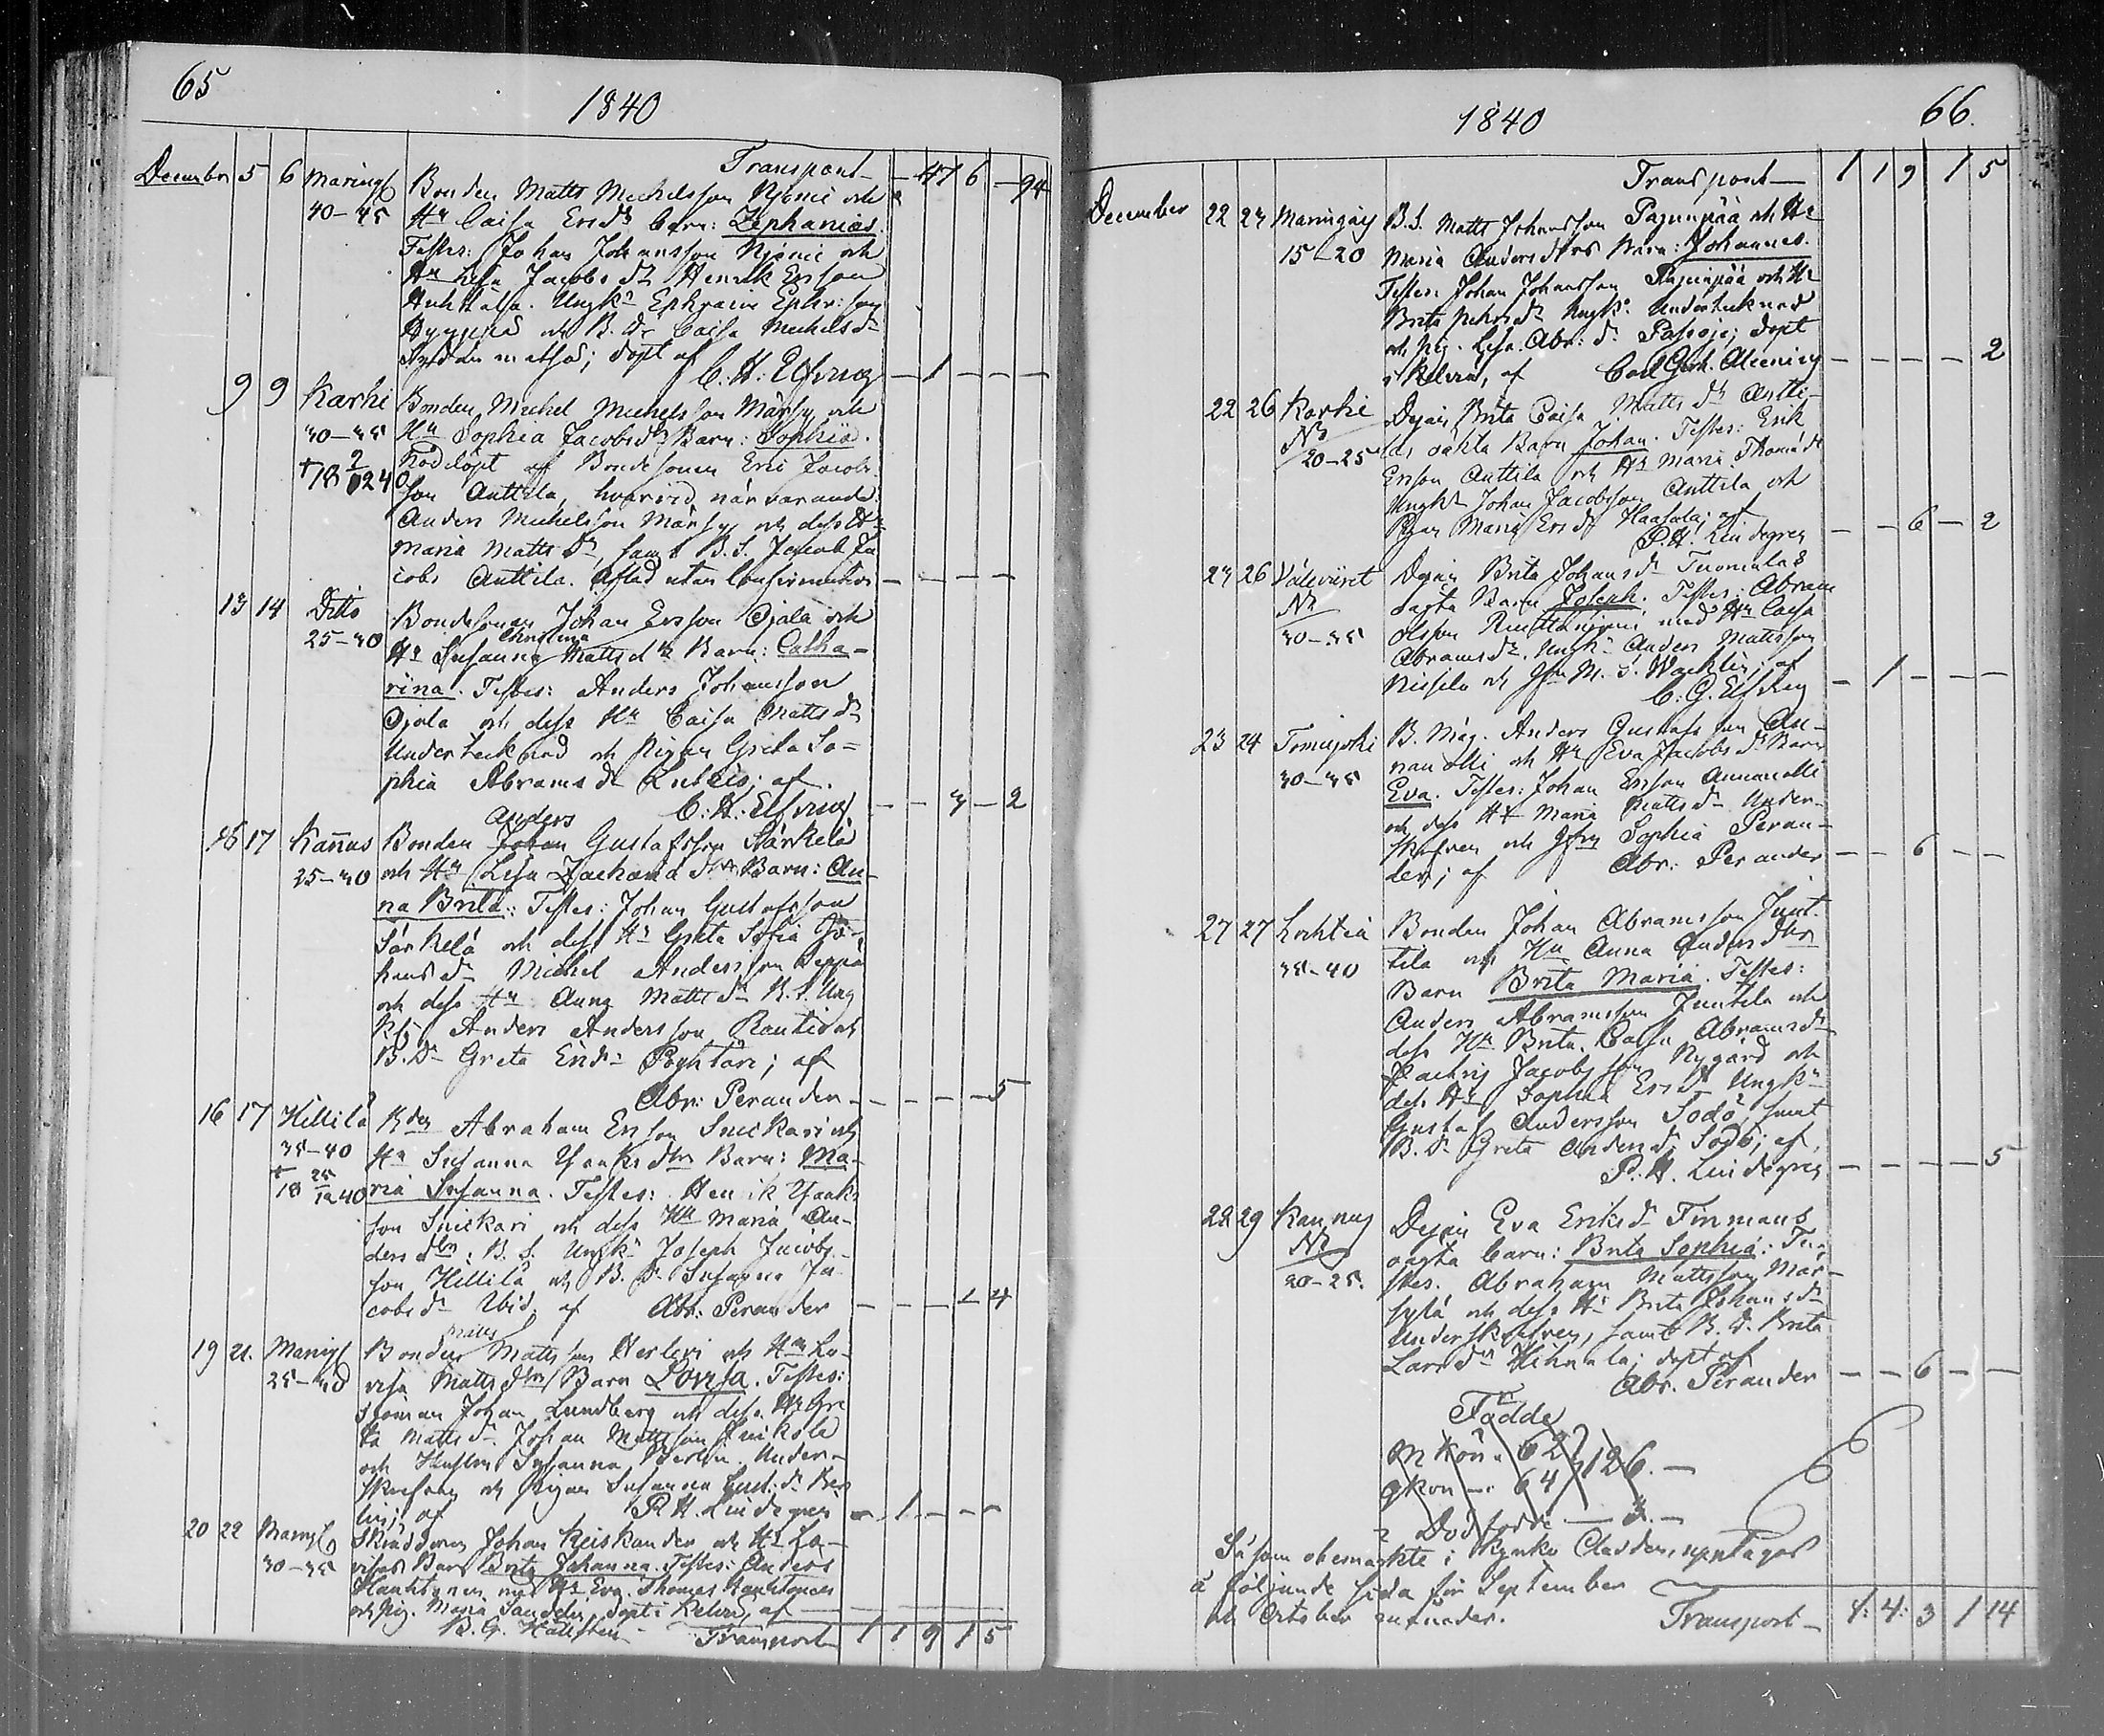 65
1840
Transport — 47 6 — 94
December 5 6 Marings Bonden Matts Michelsson Njonis och
40-45 Hu Caisa Ersdr barn: Zephanias.
Testes: Johan Johansson Njonis och
Hu Lisa Jacobsdr Henrik Ersson
Huhtala. Ungk: Ephraim Ephr:son
och B. Dr Caisa Michelsdr
Sydänmetsä; döpt af
C. H. Elfving — 1 — — —
9 9 Karhi Bonden Michel Michelsson Märsy och
30-35 Hu Sophia Jacobsdrs Barn: Sophia.
Nöddöpt af Bondesonen Eric Jacobs
son Anttila, hvarvid närvarande
Anders Michelsson Märsy och dess Hu
Maria Mattsdr, samt B. S. Jacob Ja
cobs Anttila. Aflad utan Confirmation — — — —
13 14 Ditto Bondesonen Johan Ersson Ojala och
25-30 Hu Susanna Christina Mattsdrs Barn: Catha-
rina. Testes: Anders Johansson
Ojala och dess Hu Caisa Mattsdr
Undertecknad och Pigan Greta So-
phia Abramsdr ; af
C. H. Elfving — — 3 — 2
Anders
16 17 Kannus Bonden Johan Gustafsson Särkelä
25-30 och Hu Lisa Zachariæ drs Barn: An-
na Brita: Testes: Johan Gustafsson
Särkelä och dess Hu Greta Sofia Jo-
hansdr Michel Andersson
och dess Hu Anna Mattsdr B. S. Ung
Anders Andersson Rautio och
B. Dr Greta Ersdr ; af
Abr: Perander — — — — 5
16 17 Hillilä Bden Abraham Ersson Snickari och
35-40 Hu Susanna Isaksdrs Barn: Ma-
ria Susanna. Testes: Henrik Isaks
son Snickari och dess Hu Maria An-
dersdr: B. S. Ungk: Joseph Jacobs-
son Hillilä och B. Dr Susanna Ja-
cobsdr Ibid; af Abr: Perander — — — 1 4
19 21. Marings Bonden Matts Mattsson Herleri och Hu Lo-
25-30 visa Mattsdrs Barn Lovisa. Testes:
Johan Lundberg och dess Hu Gre
ta Mattsdr. Johan Mattsson
och Hustru Susanna Berlin. Under-
skrefven och Pigan Susanna Gust: dr Ber
lin; af P. H. Lindegren — 1 — — —
20 22 Marings Skräddaren Johan Keiskander och Hu Lo-
30-35 visas Barn Brita Johanna. Testes: Anders
Hauhtonen med Hu Eva. Thomas Hauhtonen
och Pig. Maria Sandelin, döpt i Kelvio, af
B. G. Hällsten Transport 1 1 9 1 5
1840
66.
Transport — 1 1 9 1 5
December 22 23 Maringais B. S. Matts Johansson Pajunpää och Hu
15-20 Maria Andersdotters Barn: Johannes.
Testes: Johan Johansson Pajunpää och Hu
Brita Pehrsdr Ungk: Undertecknad
och Pig. Lisa Abr: dr Passoja; döpt
i Kelvio, af Carl Gust. Alcenius — — — — 2
22 26 Karhi Dejan Brita Caisa Mattsdr Antti-
20-25 las oäkta Barn Johan. Testes: Erik
Ersson Anttila och Hu Maria Thomædr
Ungk: Johan Jacobsson Anttila och
Pigan Maria Ersdr Haasala; af
P. H. Lindegren — — 6 — 2
23 26 Välivirret Dejan Brita Johansdr Tuomelas
oägta Barn Joseph. Testes: Abram
30-35 Olsson med Hu Caisa
Abramsdr. Ungk: Anders Mattsson
Nissela och Jfru M. S. Wacklin; af
C. G. Elfving — 1 — — —
23 24 Tomujoki B. Måg. Anders Gustafsson An-
30-35 nanolli och Hu Eva Jacobsdrs Barn
Eva. Testes: Johan Ersson Annanolli
och dess Hu Maria Mattsdr Under-
skrefven och Jfru Sophia Peran-
der; af Abr: Perander — — 6 — —
27 27 Lochtia Bonden Johan Abramsson Junt-
35-40 tila och Hu Anna Andersdtrs
Barn Brita Maria. Testes:
Anders Abramsson Juntila och
dess Hu Brita Caisa Abramsdr
Zachris Jacobsson Nygård och
dess Hu Sophia Ersdr Ungk:
Gustaf Andersson Södö, samt
B. Dr Greta Andersdr Södö; af
P. H. Lindegren — — — — 5
22 29 Kannus Dejan Eva Eriksdr Finmans
20-25. oägta barn: Brita Sophia: Te-
stes. Abraham Mattsson Mär-
sylä och dess Hu Brita Johansdr
Underskrefven, samt B. D. Brita
Larsdr Hihnala; döpt af
Abr. Perander — — 6 — —
Födde
M Kön. 62
Qkön — 64 126. —
Dödfödde — 3. —
Såsom obemärkte i Kyrko Cladden, upptages
å följande sida för September
och October månader.
Transport — 1: 4: 3 1 14